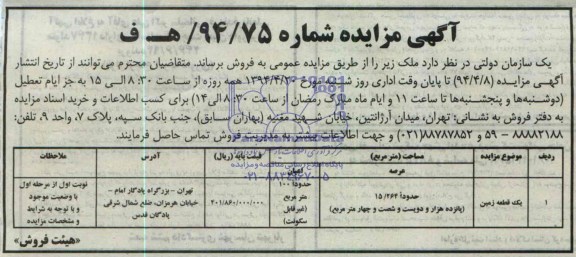 آگهی مزایده شماره ۹۴/۷۵/ هـ ف
یک سازمان دولتی در نظر دارد ملک زیر را از طریق مزایده عمومی به فروش برساند. متقاضیان محترم می‌توانند از تاریخ انتشار
آگهی مزایده (۹۴/۴/۸) تا پایان وقت اداری روز مورخ ۱۳۹۴/۴/۲۰ همه روزه از ساعت ۸:۳۰ الی ۱۵ به جز ایام تعطیل
(دوشنبه‌ها و پنجشنبه‌ها تا ساعت ۱۱ و ایام ماه مبارک رمضان از ساعت ۸:۳۰ الی ۱۴) برای کسب اطلاعات و خرید اسناد مزایده
به دفتر فروش به نشانی: تهران، میدان آرژانتین، خیابان شهید (بهاران سابق)، جنب بانک سپه، پلاک ۷، واحد ۹، تلفن:
۸۸۸۸۲۱۸۸ – ۵۹ و ۸۸۷۸۷۸۵۲(۰۲۱) و جهت اطلاعات بیشتر به مدیریت فروش تماس حاصل فرمایند.
ردیف موضوع مزایده مساحت (متر مربع) قیمت پایه (ریال) آدرس ملاحظات
عرصه اعیان
۱ یک قطعه زمین حدوداً ۱۵/۲۶۴ (پانزده هزار و دویست و شصت و چهار متر مربع) حدوداً ۱۰۰ متر مربع (غیرقابل سکونت) ۲۰۱/۸۶۰/۰۰۰/۰۰۰ تهران – بزرگراه یادگار امام – خیابان هرمزان، ضلع شمال شرقی پادگان قدس نوبت اول از مرحله اول با وضعیت موجود و با توجه به شرایط و مشخصات مزایده
«هیئت فروش»